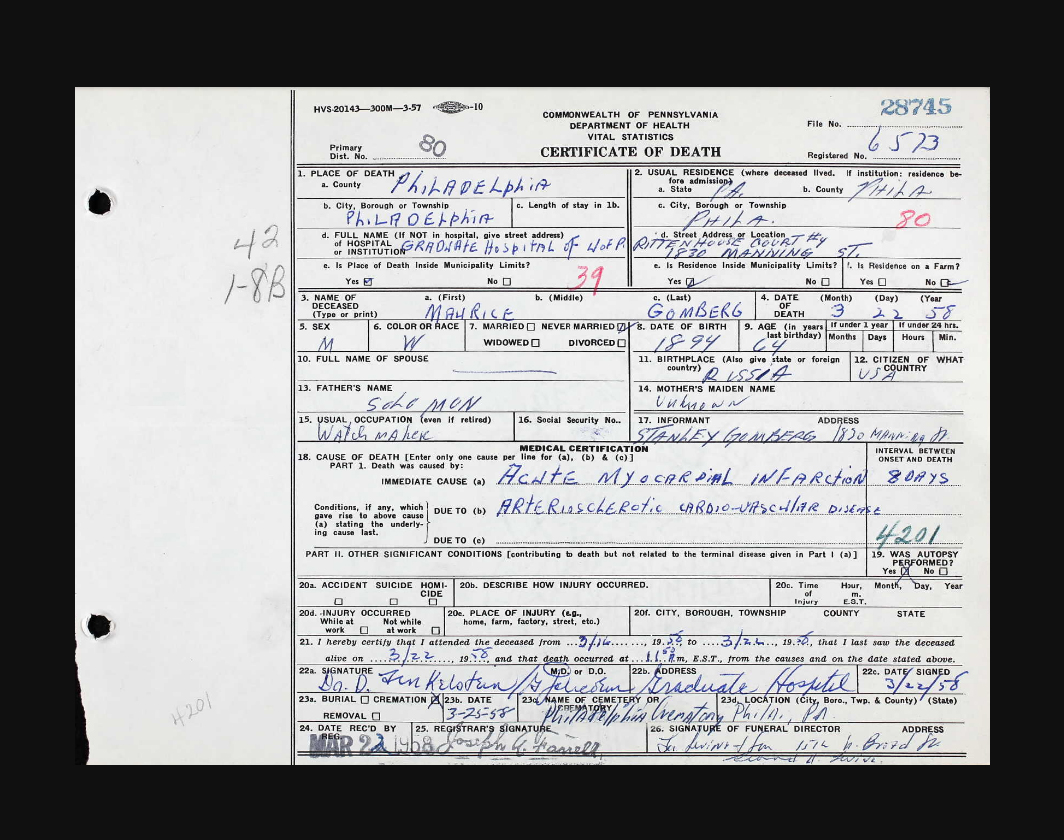 HVS-20143—300M—3-57 -10
COMMONWEALTH OF PENNSYLVANIA
DEPARTMENT OF HEALTH
VITAL STATISTICS
CERTIFICATE OF DEATH
28745
File No.
Registered No. 6523
Primary
Dist. No. 80
42
1-8B
1. PLACE OF DEATH
a. County PHILADELphIA
2. USUAL RESIDENCE (where deceased lived. If institution: residence be-
fore admission)
a. State PA. b. County PHILA
b. City, Borough or Township
PhILADELphIA
c. Length of stay in 1b.
c. City, Borough or Township
PHILA. 80
d. FULL NAME (If NOT in hospital, give street address)
of HOSPITAL
or INSTITUTION GRADUATE HOSPITAL of U of P.
d. Street Address or Location
RITTENHOUSE COURT #4
1830 MANNING ST.
e. Is Place of Death Inside Municipality Limits?
Yes No 39
e. Is Residence Inside Municipality Limits?
Yes No
f. Is Residence on a Farm?
Yes No
3. NAME OF
DECEASED
(Type or print)
a. (First) b. (Middle) c. (Last)
MAURICE GOMBERG
4. DATE
OF
DEATH
(Month) (Day) (Year
3 22 58
5. SEX
M
6. COLOR OR RACE
W
7. MARRIED NEVER MARRIED
WIDOWED DIVORCED
8. DATE OF BIRTH
1894
9. AGE (in years
last birthday)
64
If under 1 year
Months Days
If under 24 hrs.
Hours Min.
10. FULL NAME OF SPOUSE
11. BIRTHPLACE (Also give state or foreign
country) RUSSIA
12. CITIZEN OF WHAT
COUNTRY
USA
13. FATHER'S NAME
SOLOMON
14. MOTHER'S MAIDEN NAME
Unknown
15. USUAL OCCUPATION (even if retired)
WATCH MAKER
16. Social Security No..
17. INFORMANT ADDRESS
STANLEY GOMBERG 1830 MANNING St.
MEDICAL CERTIFICATION
18. CAUSE OF DEATH [Enter only one cause per line for (a), (b) & (c)]
PART 1. Death was caused by:
INTERVAL BETWEEN
ONSET AND DEATH
IMMEDIATE CAUSE (a) ACUTE MYOCARDIAL INFARCTION 8 DAYS
Conditions, if any, which
gave rise to above cause
(a) stating the underly-
ing cause last.
DUE TO (b) ARTERIOSCLEROTIC CARDIO-VASCULAR DISEASE
4201
DUE TO (c)
PART II. OTHER SIGNIFICANT CONDITIONS [contributing to death but not related to the terminal disease given in Part I (a)]
19. WAS AUTOPSY
PERFORMED?
Yes No
20a. ACCIDENT SUICIDE HOMI-
CIDE
20b. DESCRIBE HOW INJURY OCCURRED.
20c. Time
of
Injury
Hour, Month, Day, Year
m.
E.S.T.
20d. INJURY OCCURRED
While at
work
Not while
at work
20e. PLACE OF INJURY (e.g.,
home, farm, factory, street, etc.)
20f. CITY, BOROUGH, TOWNSHIP COUNTY STATE
21. I hereby certify that I attended the deceased from 3/16, 1958 to 3/22, 1958, that I last saw the deceased
alive on 3/22, 1958 and that death occurred at m, E.S.T., from the causes and on the date stated above.
22a. SIGNATURE M.D. or D.O.
Dr. D. Finkelstein
22b. ADDRESS
Graduate Hospital
22c. DATE SIGNED
3/22/58
23a. BURIAL CREMATION
REMOVAL
23b. DATE
3-25-58
23c. NAME OF CEMETERY OR
CREMATORY
Philadelphia Crematory
23d. LOCATION (City, Boro., Twp. & County) (State)
Phila., Pa
4201
24. DATE REC'D BY
REG.
MAR 22 1958
25. REGISTRAR'S SIGNATURE
Joseph A. Farrell
26. SIGNATURE OF FUNERAL DIRECTOR ADDRESS
Broad St